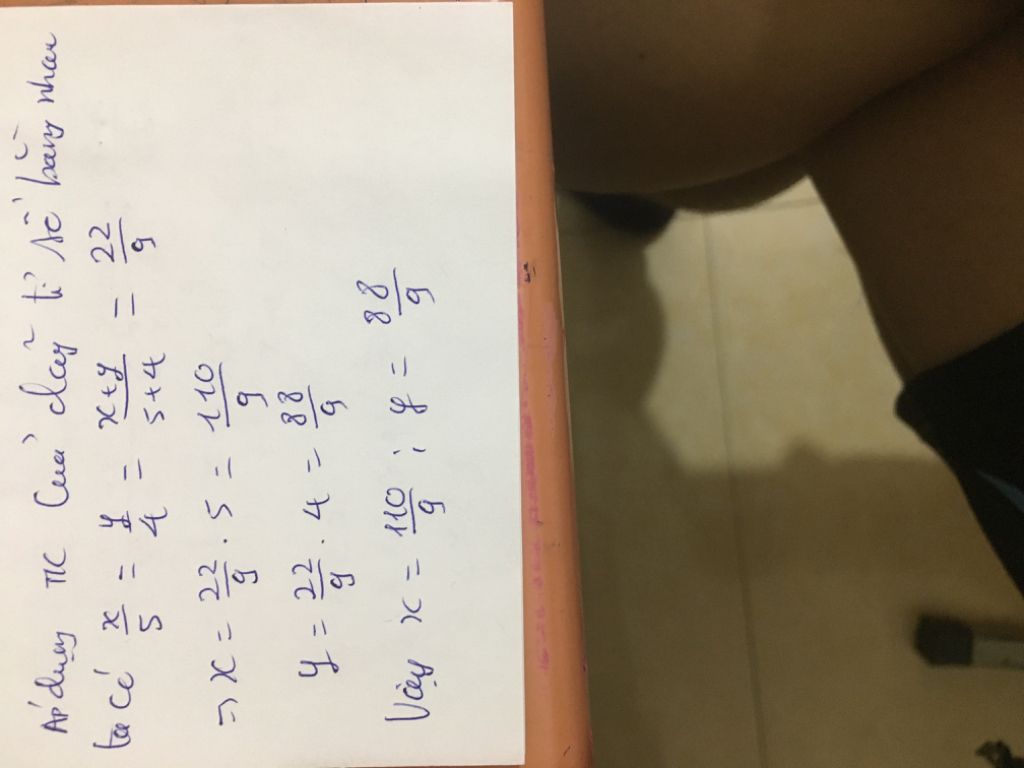 Áp dụng TC của dãy tỉ số bằng nhau
ta có x/5 = y/4 = x+y/5+4 = 22/9
=> x = 22/9 . 5 = 110/9
y = 22/9 . 4 = 88/9
Vậy x = 110/9 ; y = 88/9